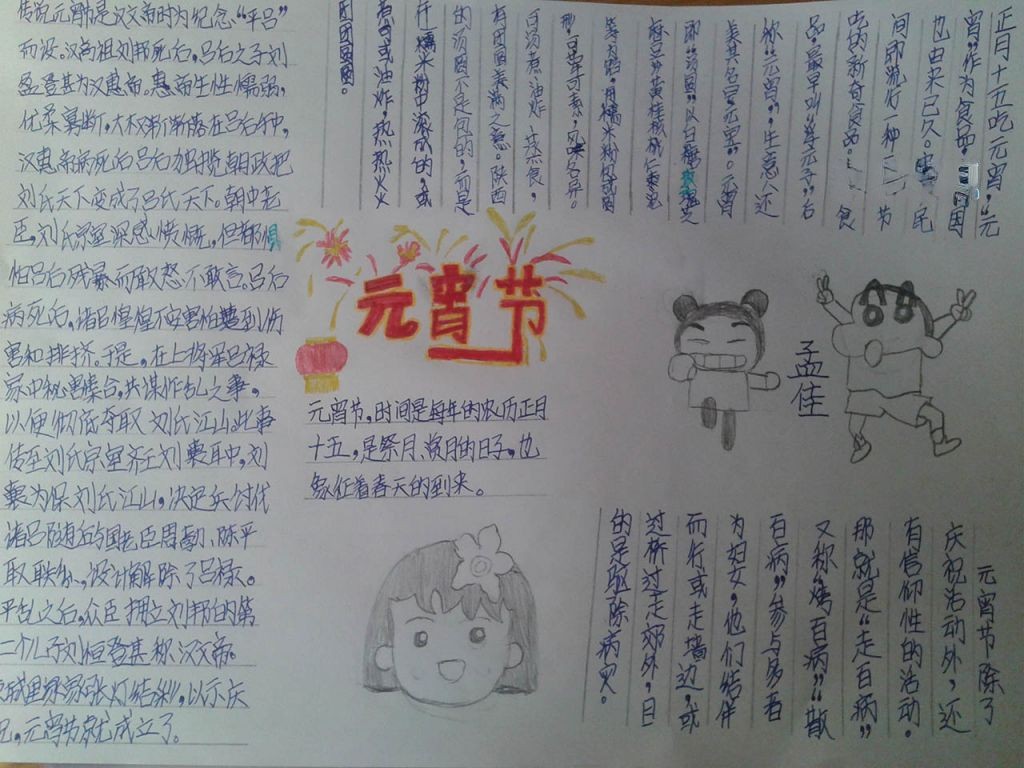 元宵节
传说元宵节是汉文帝时为纪念“平吕”
而设。汉高祖刘邦死后,吕后之子刘
盈登基为汉惠帝。惠帝生性懦弱,
优柔寡断,大权渐渐落在吕后手中,
汉惠帝病死后吕后独揽朝政把
刘氏天下变成了吕氏天下。朝中老
臣,刘氏宗室深感愤慨,但都惧
怕吕后残暴而敢怒不敢言。吕后
病死后,诸吕惶惶不安害怕遭到伤
害和排挤。于是,在上将军吕禄
家中秘密集合,共谋作乱之事,
以便彻底夺取刘氏江山此事
传至刘氏宗室齐王刘襄耳中,刘
襄为保刘氏江山,决定兵讨伐
诸吕随后与国老臣周勃、陈平
取联系,设计解除了吕禄。
平乱之后,众臣拥立刘邦的第
二个儿子刘恒登基称汉文帝。
城里家家张灯结彩,以示庆
元宵节就成立了。
正月十五吃元宵,“元
宵”作为食品,的国
也由来已久。民
间即流行一种节
吃的新奇食品
品最早叫“浮元子”名
称“元宵”,生意人还
美其名曰“元宝”。元宵
即“汤圆”以白糖
馅,用糯米粉包成圆
形,可荤可素,风味各异。
可汤煮、油炸、蒸食,
有团圆美满之意。陕西
的汤圆不是包的,而是
在糯米粉中滚成的,或
煮司或油炸,热热火火
团团圆圆。
元宵节,时间是每年的农历正月
十五,是祭月、赏月的日子,也
象征着春天的到来。
孟佳
元宵节除了
庆祝活动外,还
有信仰性的活动。
那就是“走百病”
又称“烤百病”“散
百病”参与多者
为妇女,他们结伴
而行或走墙边,或
过桥过走郊外,目
的是驱除病灾。